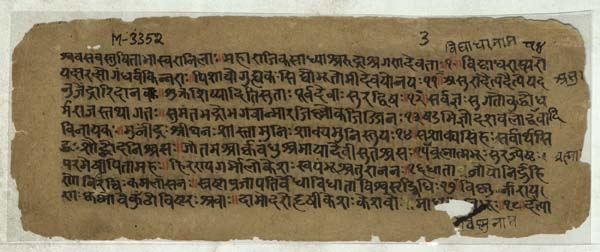 M-3352
3
विद्याधरनाम
श्ववसवस्तुषिताभास्वरानिलाः॥ महाराजिकसाध्याश्चरुद्राश्चगणदेवताः॥१०॥ विद्याधराप्सरो
यक्षरक्षोगंधर्वकिन्नराः॥ पिशाचोगुह्यकःसिद्धोभूतोमीदेवयोनयः॥११॥ असुरादैत्यदैतेयद
नुजेंद्रारिदानवाः॥ शुक्रशिष्यादितिसुताः॥पूर्वदेवाःसुरद्विषः॥१२॥ सर्वज्ञःसुगतोबुद्धोध
र्मराजस्तथागतः॥ समंतभद्रोभगवान्मारजिल्लोकजिज्जिनः॥१३॥षडभिज्ञोदशबलोद्वयवादि
विनायकः॥ मुनींद्रःश्रीघनःशास्तामुनिःशाक्यमुनिस्तुयः॥१४॥सशाक्यसिंहःसर्वार्थसि
द्धःशौद्धोदनिश्चसः॥ गौतमश्चार्कबंधुश्चमायादेवीसुतश्चसः॥१५॥ब्रह्मात्मभूःसुरज्येष्ठः
परमेष्ठीपितामहः॥हिरण्यगर्भोलोकेशःस्वयंभूश्चतुराननः॥१६॥धाता योनिर्द्रुहि
णोविरिंचिःकमलासनः॥ स्रष्टाप्रजापतिर्वेधाविधाताविश्वसृड्विधिः॥१७॥विष्णुर्नाराय
णःकृष्णोवैकुंठोविष्टरश्रवाः॥दामोदरोहृषीकेशःकेशवोमाधवः भूः॥१८॥दैत्या
विष्णुनाम